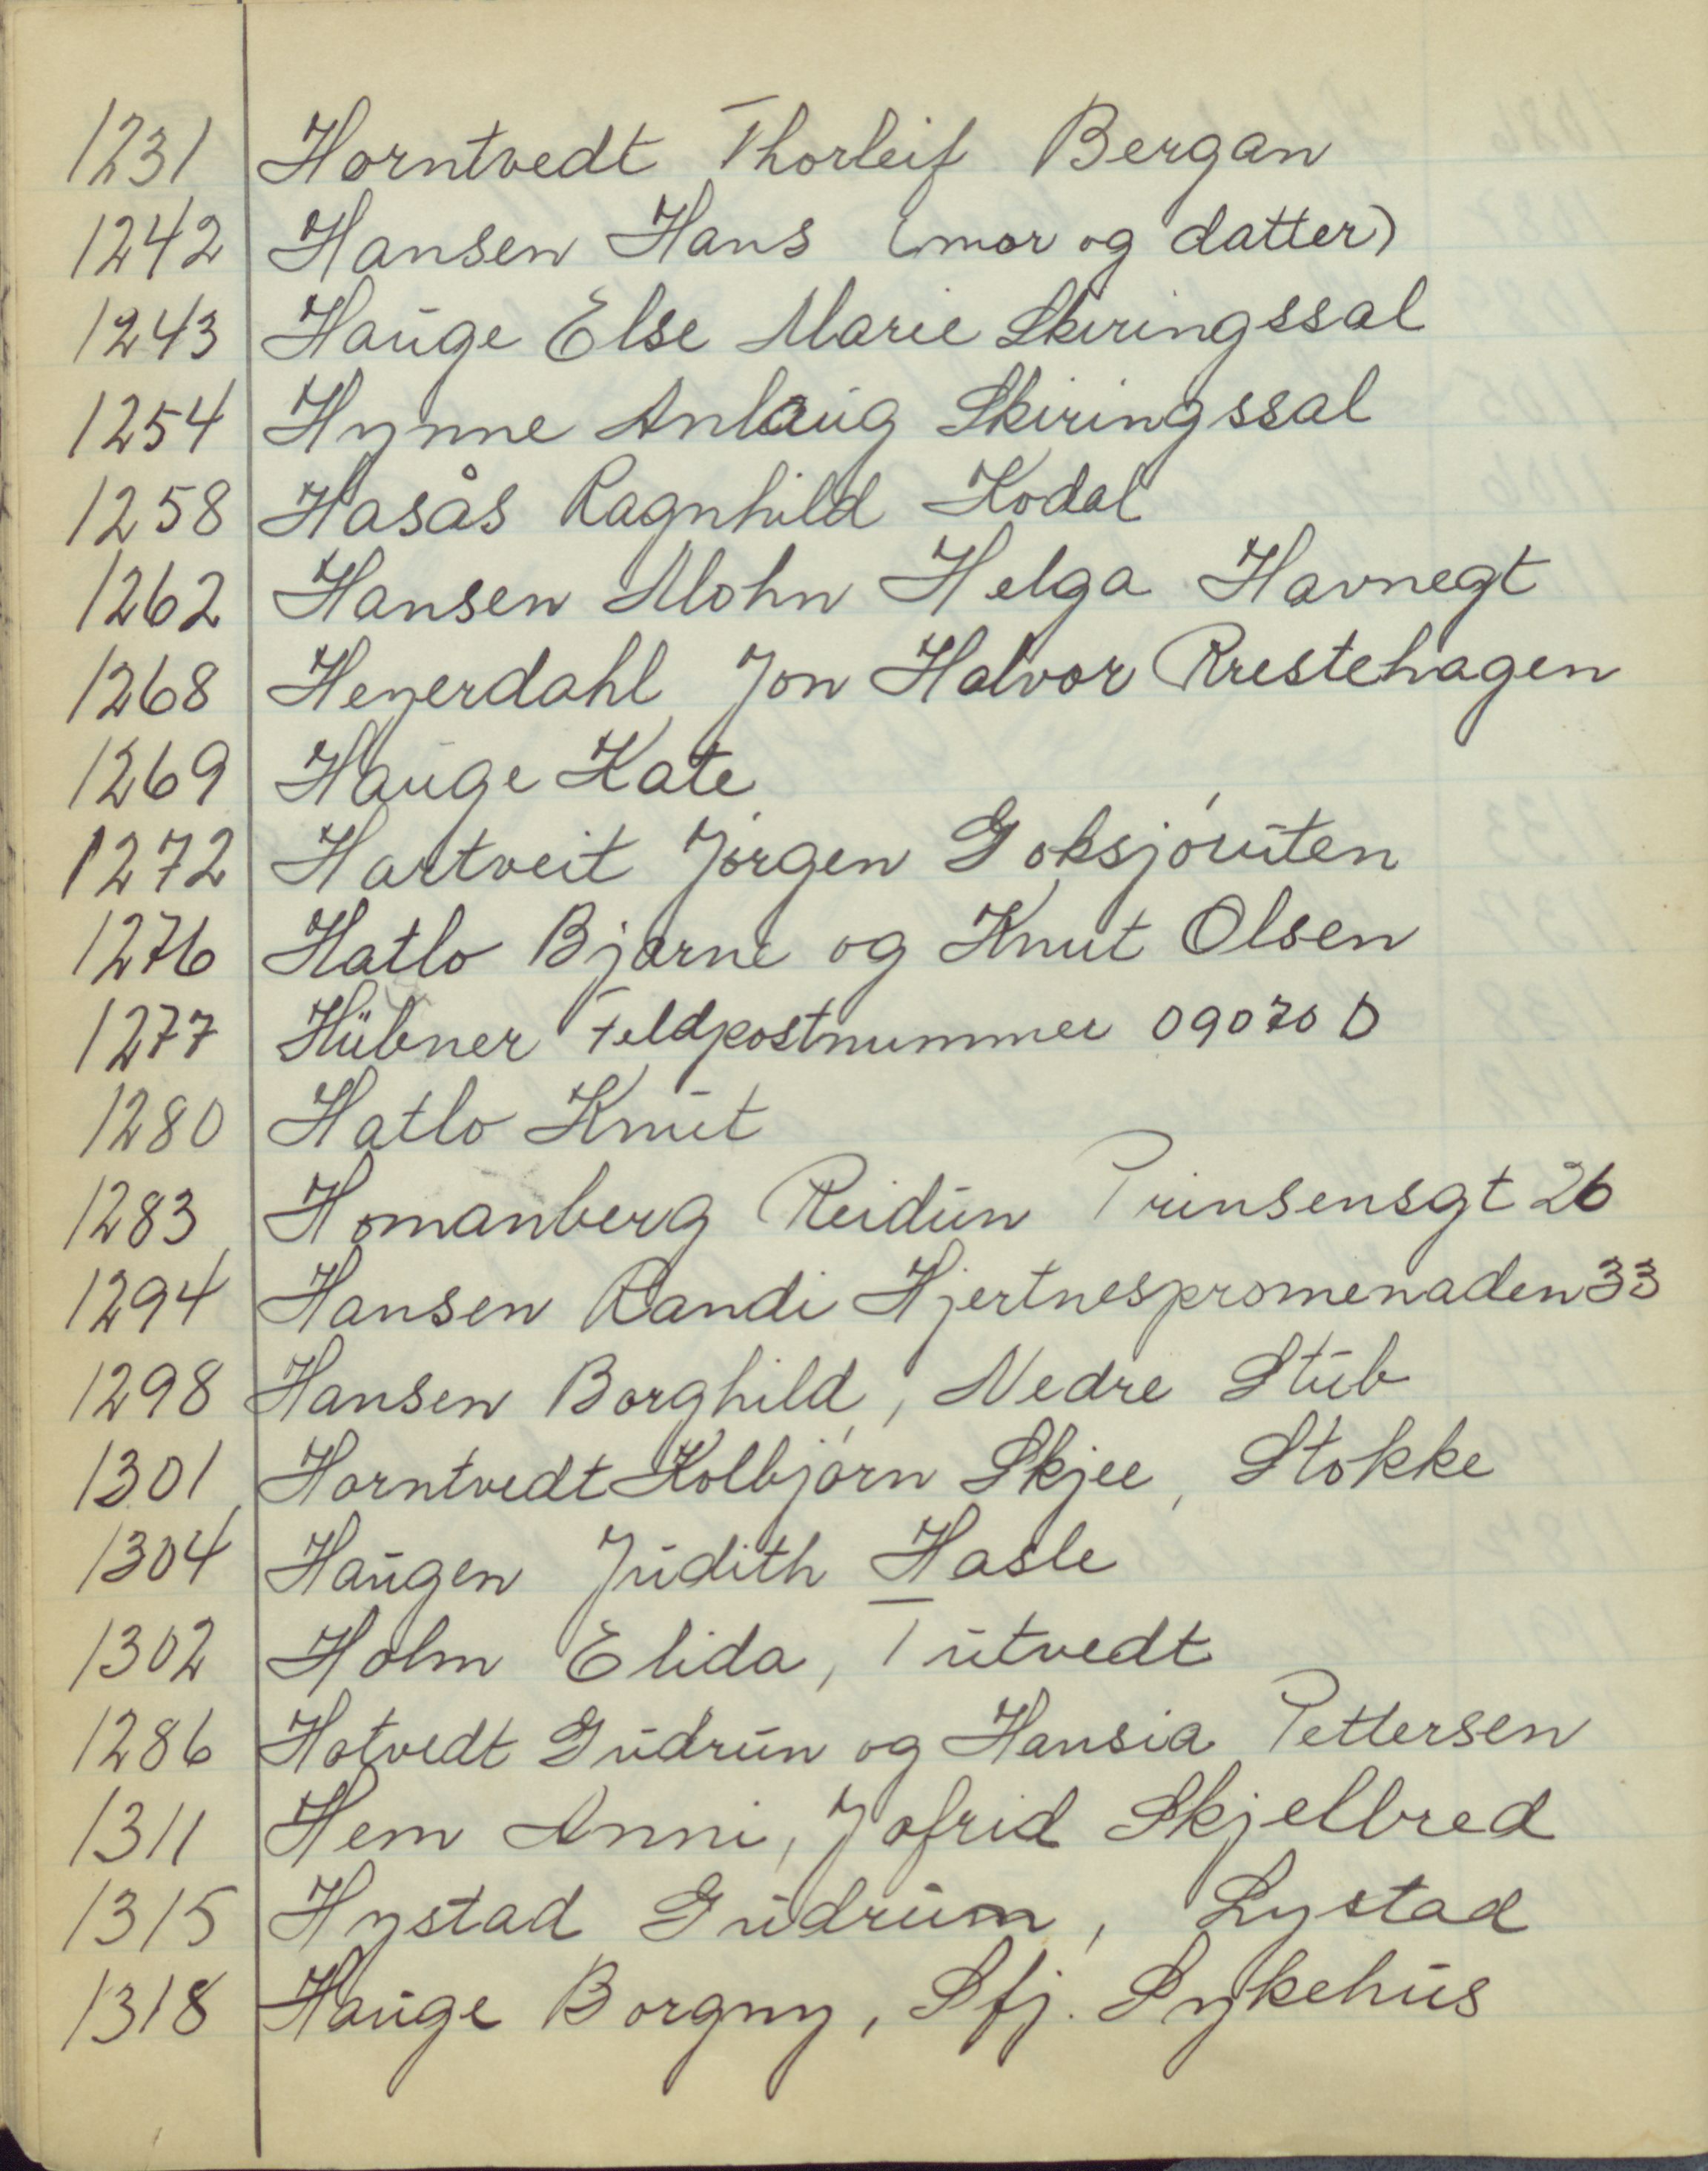 1231 Horntvedt Thorleif Bergan
1242 Hansen Hans (mor og datter)
1243 Hauge Else Marie Skiringssal
1254 Hynne Anlaug Skiringssal
1258 Hasås Ragnhild Kodal
1262 Hansen Mohn Helga Havnegt
1268 Heyerdahl Jon Halvor Prestehagen
1269 Hauge Kate
1272 Hartveit Jørgen Goksjøruten
1276 Hatlo Bjarne og Knut Olsen
1277 Hübner Feldpostnummer 09070 D
1280 Hatlo Knut
1283 Homanberg Reidun Prinsensgt 26
1294 Hansen Randi Hjertnespromenaden 33
1298 Hansen Borghild, Nedre Stub
1301 Horntvedt Kolbjørn Skjee, Stokke
1304 Haugen Judith Hasle
1302 Holm Elida, Tutvedt
1286 Hotvedt Gudrun og Hansia Pettersen
1311 Hem Anni, Jofrid Skjelbred
1315 Hystad Gudrun, Lystad
1318 Hauge Borgny, Sfj. Sykehus